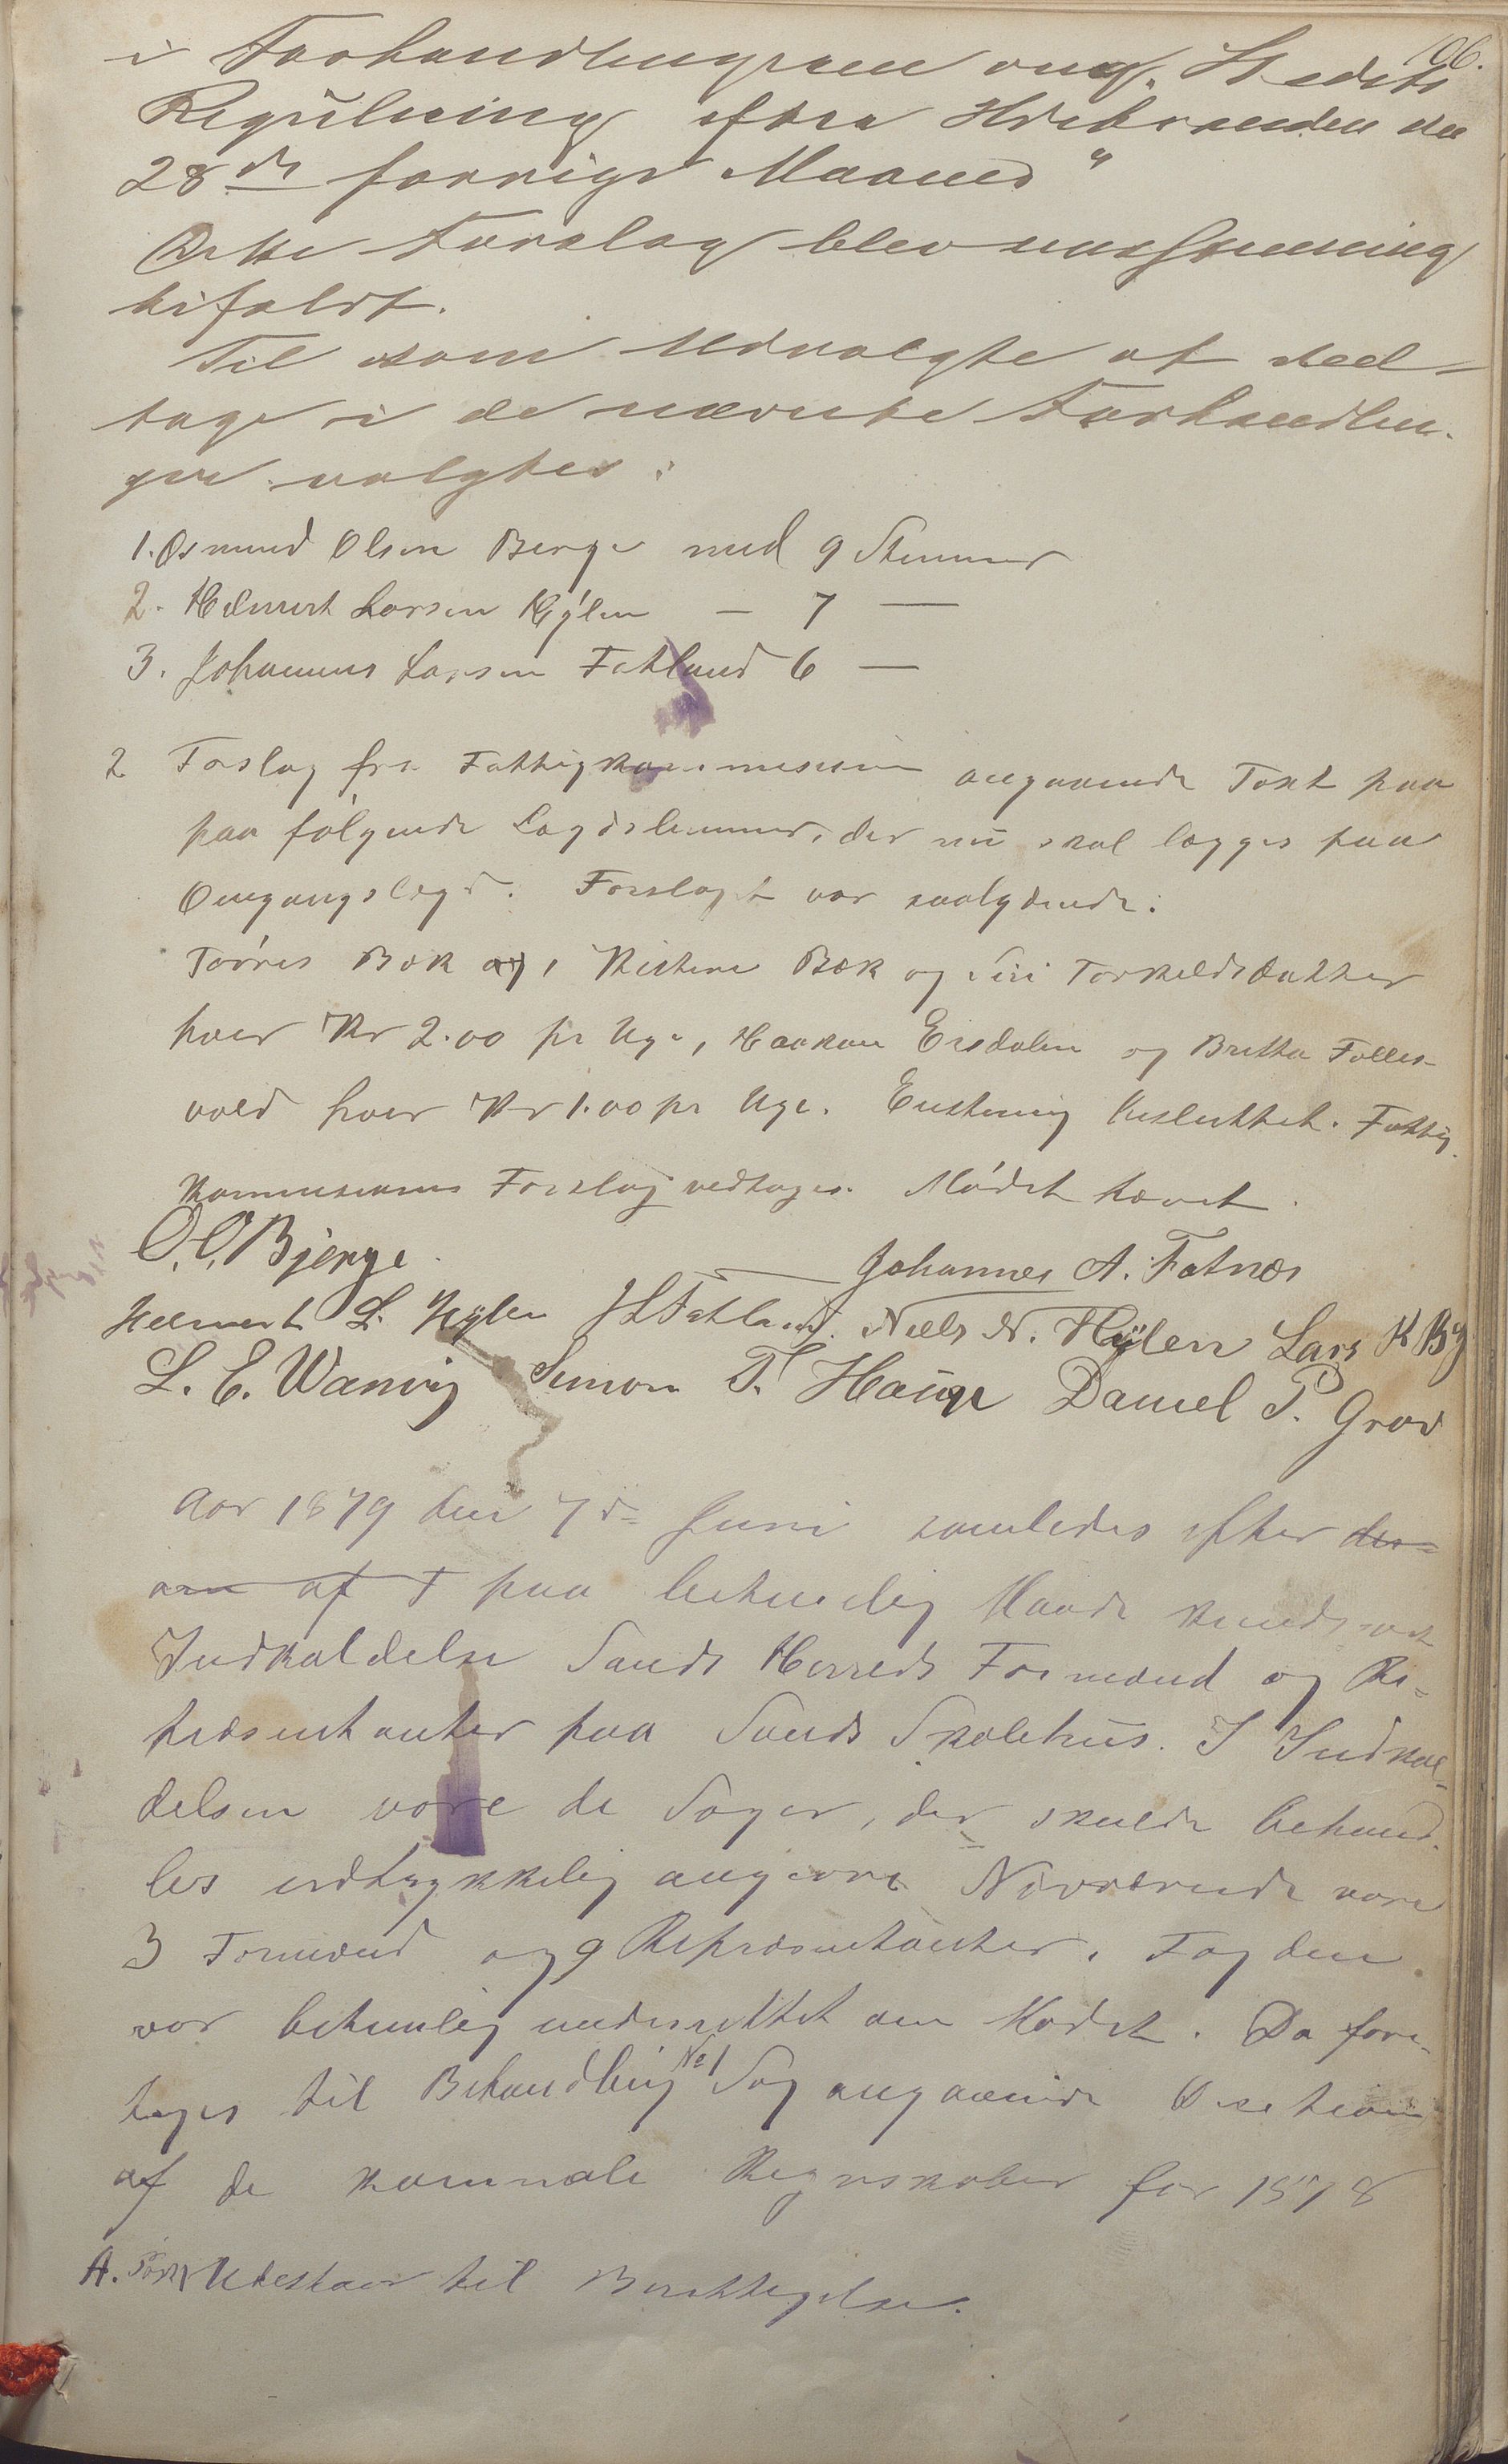 106.
i Forhandlingerne ang. Stedets
Regulering efter Ildebranden den
28de forrige Maaned"
Dette Forslag blev enstemmig
bifaldt.
Til som Udvalgte at deel-
tage i de nævnte Forhandlin-
ger valgtes:
1. Osmund Olsen Berge med 9 Stemmer
2. Helmert Larsen Hylen — 7 —
3. Johannes Larsen Fatland 6 —
2 Forslag fra Fattigkommissionen angaaende Taxt paa
paa følgende Lægdslemmer, der nu skal lægges paa
Omgangslægd. Forslaget var saalydende:
Tørres Bæk og, Kistine Bæk og Siri Torkeldsdatter
hver Kr 2.00 pr Uge, Haakon Eisdalen og Britha Folles-
vold hver Kr 1.00 pr Uge. Enstemig besluttet. Fattig-
kommisionens Forslag vedtages. Mødet hævet.
O. O. Bjerge. Johannes A. Fatnæs
Helmert L. Hylen J L Fatland. Niels N. Hylen Lars K By
L. E. Wanvig Simon T. Hauge Daniel P. Grov
Aar 1879 den 7de Juni samledes efter den
af F paa betimelig Maade kundgjort
Indkaldelse Sands Herreds Formænd og Re-
præsentanter paa Sands Skolehus. I Indkal-
delsen vare de Sager, der skulde behand-
les udtrykkelig angivne. Nærværende vare
3 Formænd og 9 Repræsentanter. Fogden
var betimlig underrettet om Mødet. Da fore-
tages til Behandling No 1 Sag angaaende Decision
af de komunale Regnskaber for 1878
A. Udestaar til Berettigelse.